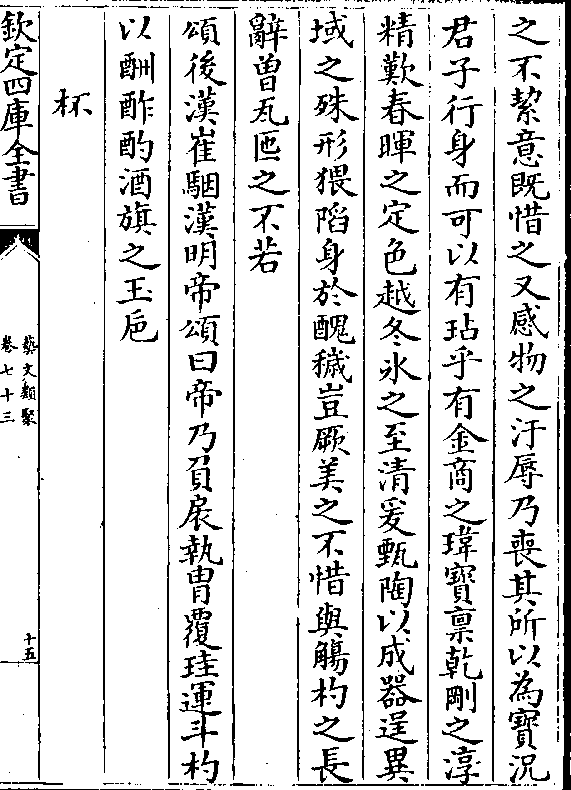 之不潔意既惜之又感物之汙辱乃喪其所以為寶況
君子行身而可以有玷乎有金商之瑋寶稟乾剛之淳
精歎春暉之定色越冬氷之至清爰甄陶以成器逞異
域之殊形猥陷身於醜穢豈厥美之不惜與觴杓之長
辭曽瓦匜之不若
頌後漢崔駰漢明帝頌曰帝乃負扆執冑覆珪運斗杓
以酬酢酌酒旗之玉巵
杯
欽定四庫全書
藝文𩔖聚
卷七十三
十五